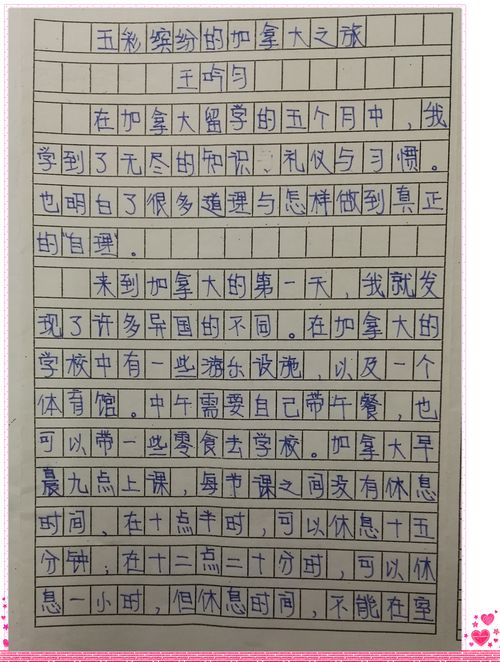 五彩缤纷的加拿大之旅
王吟匀
在加拿大留学的五个月中，我
学到了无尽的知识、礼仪与习惯。
也明白了很多道理与怎样做到真正
的“自理”。
来到加拿大的第一天，我就发
现了许多异国的不同。在加拿大的
学校中有一些游乐设施，以及一个
体育馆。中午需要自己带午餐，也
可以带一些零食去学校。加拿大早
晨九点上课，每节课之间没有休息
时间，在十点半时，可以休息十五
分钟；在十二点二十分时，可以休
息一小时，但休息时间，不能在室